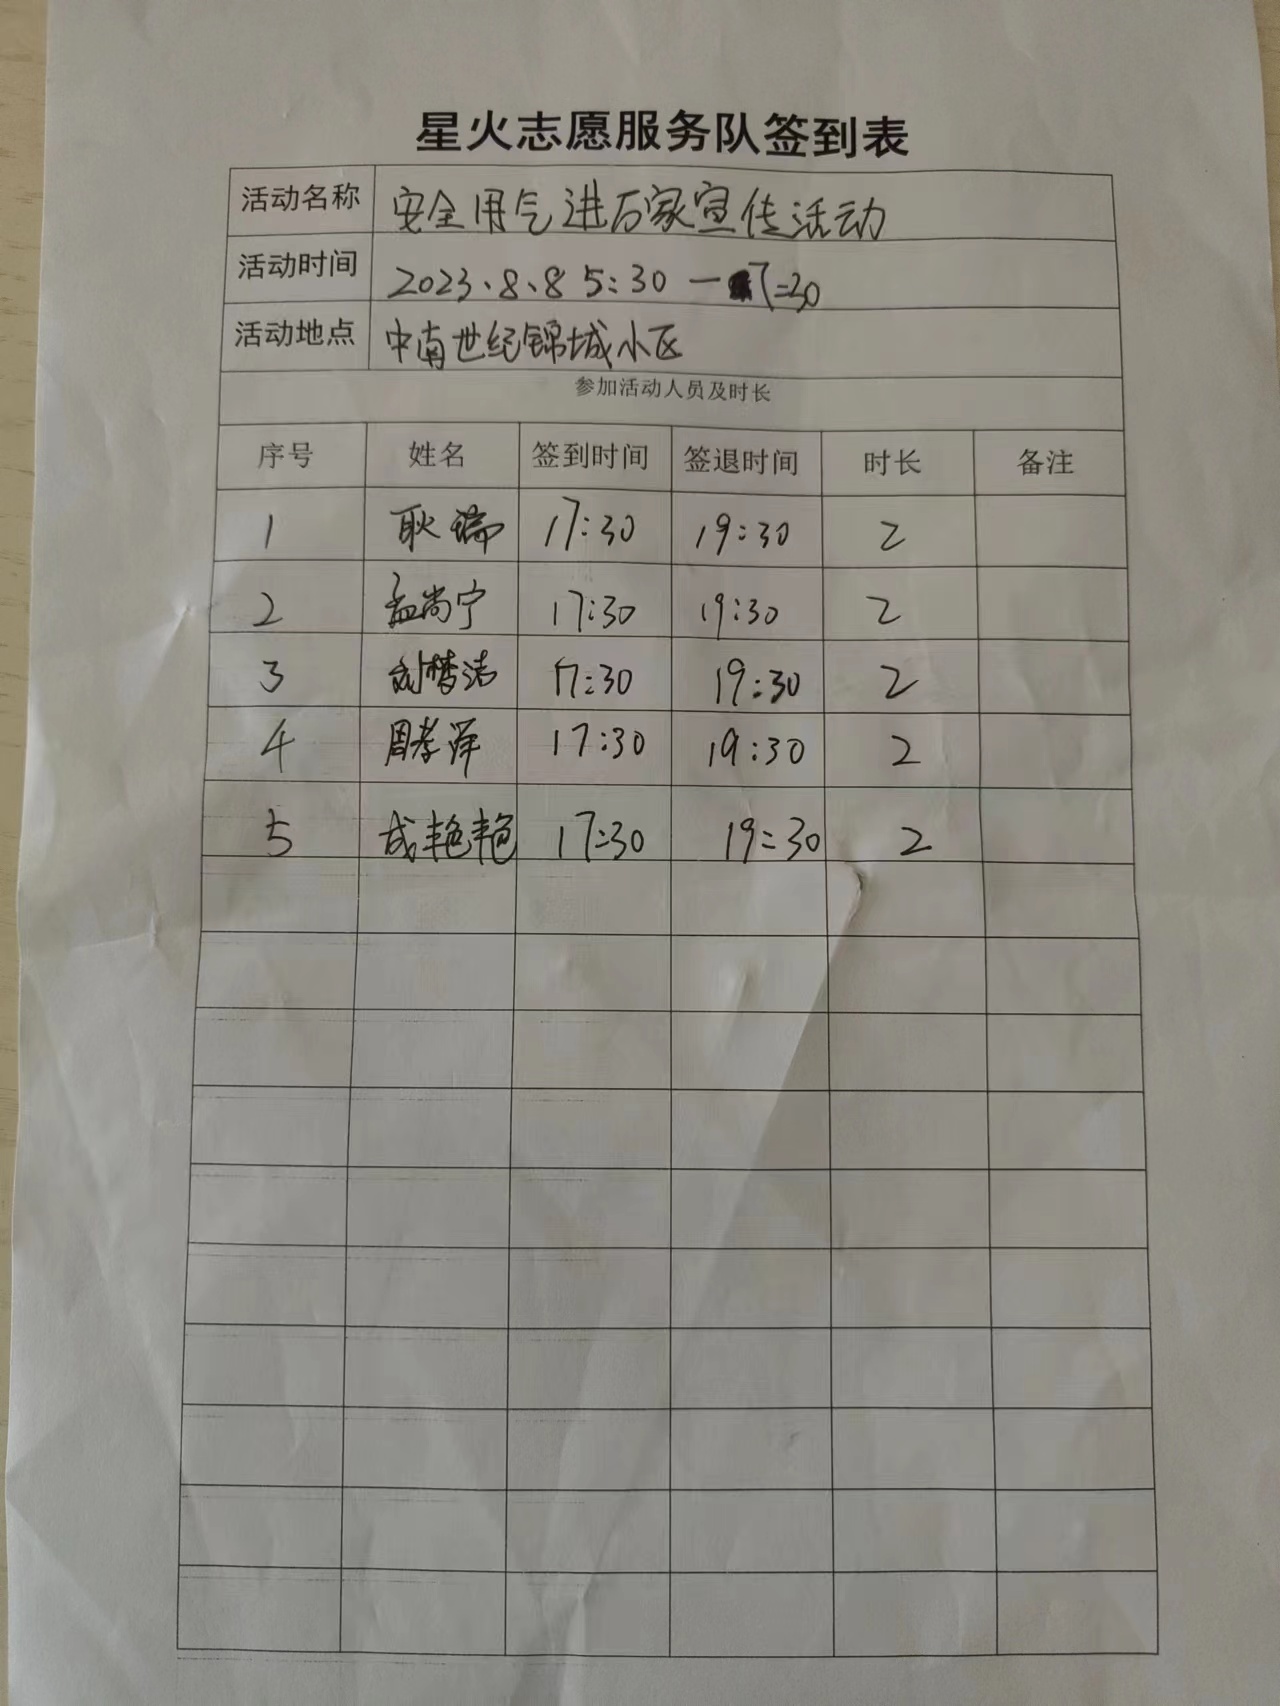 星火志愿服务队签到表
活动名称 安全用气进万家宣传活动
活动时间 2023、8、8 5:30 — 7:30
活动地点 中南世纪锦城小区
参加活动人员及时长
序号 姓名 签到时间 签退时间 时长 备注
1 耿瑞 17:30 19:30 2
2 孟尚宁 17:30 19:30 2
3 刘梦洁 17:30 19:30 2
4 周孝泽 17:30 19:30 2
5 成艳艳 17:30 19:30 2